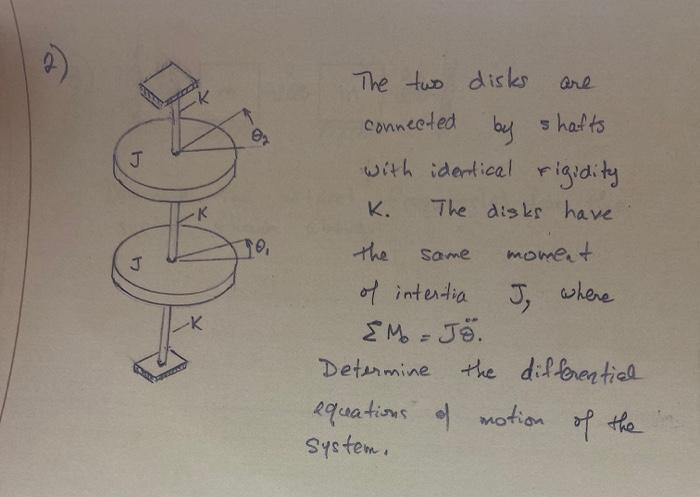 2)
The two disks are
connected by shafts
with identical rigidity
K. The disks have
the same moment
of intertia J, where
ΣM₀ = Jθ̈.
Determine the differential
equations of motion of the
system.
K
θ₂
J
K
θ₁
J
K